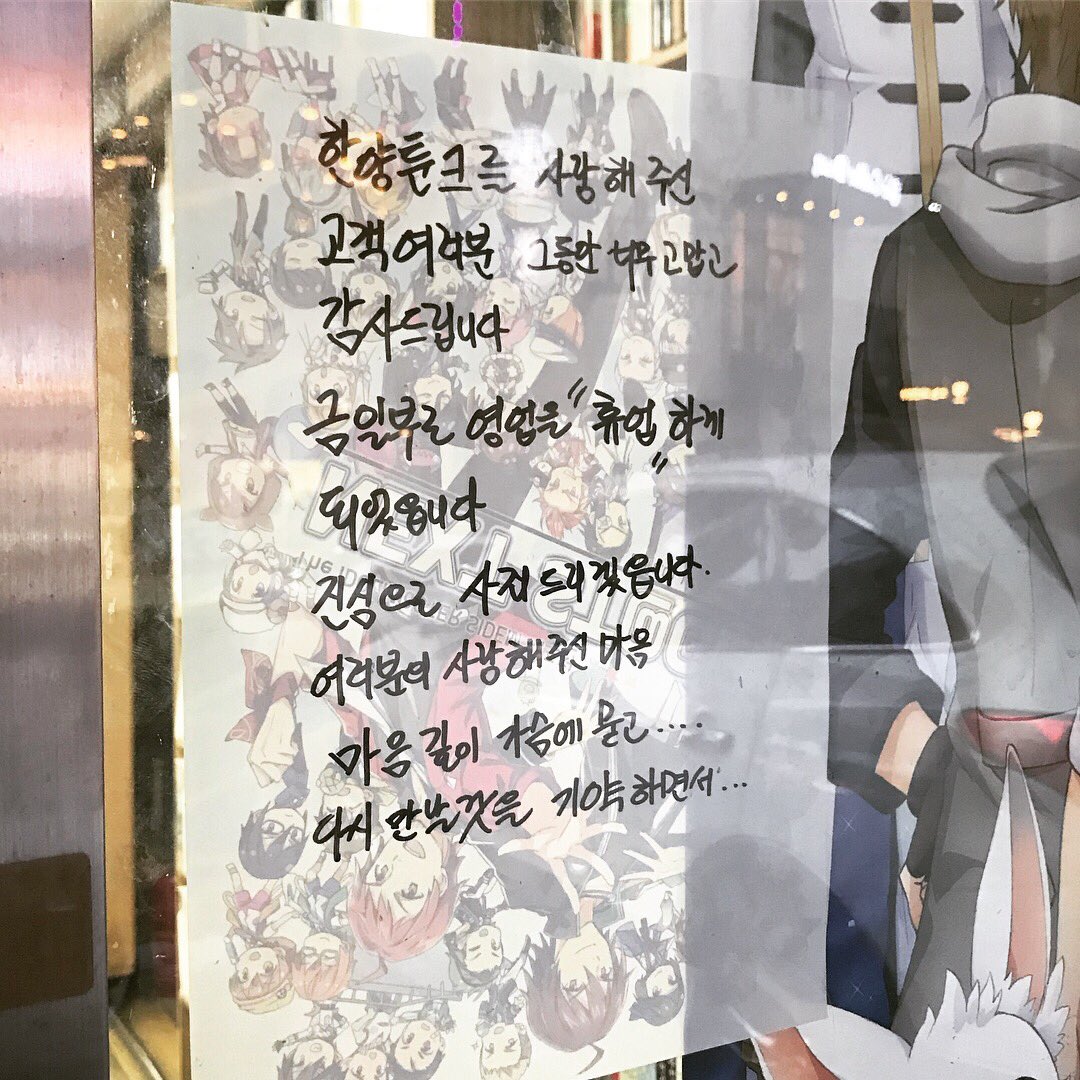 한양툰크를 사랑해 주선
고객여러분 그동안 너무 고맙고
감사드립니다
금일부로 영업을 "휴업"하게
되었습니다
진심으로 사죄드리겠읍니다.
여러분의 사랑해주신 마음
마음 깊이 가슴에 묻고....
다시 만날것을 기약하면서...